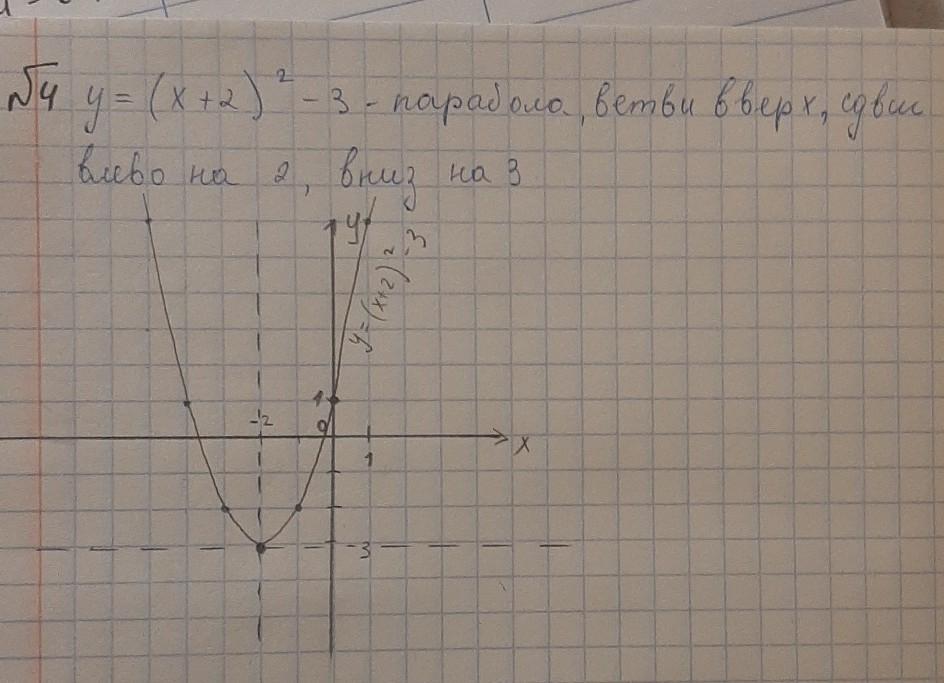 №4 y = (x+2)² - 3 - парабола, ветви вверх, сдвиг
влево на 2, вниз на 3
y
y=(x+2)²-3
1
-2
0
1
x
-3